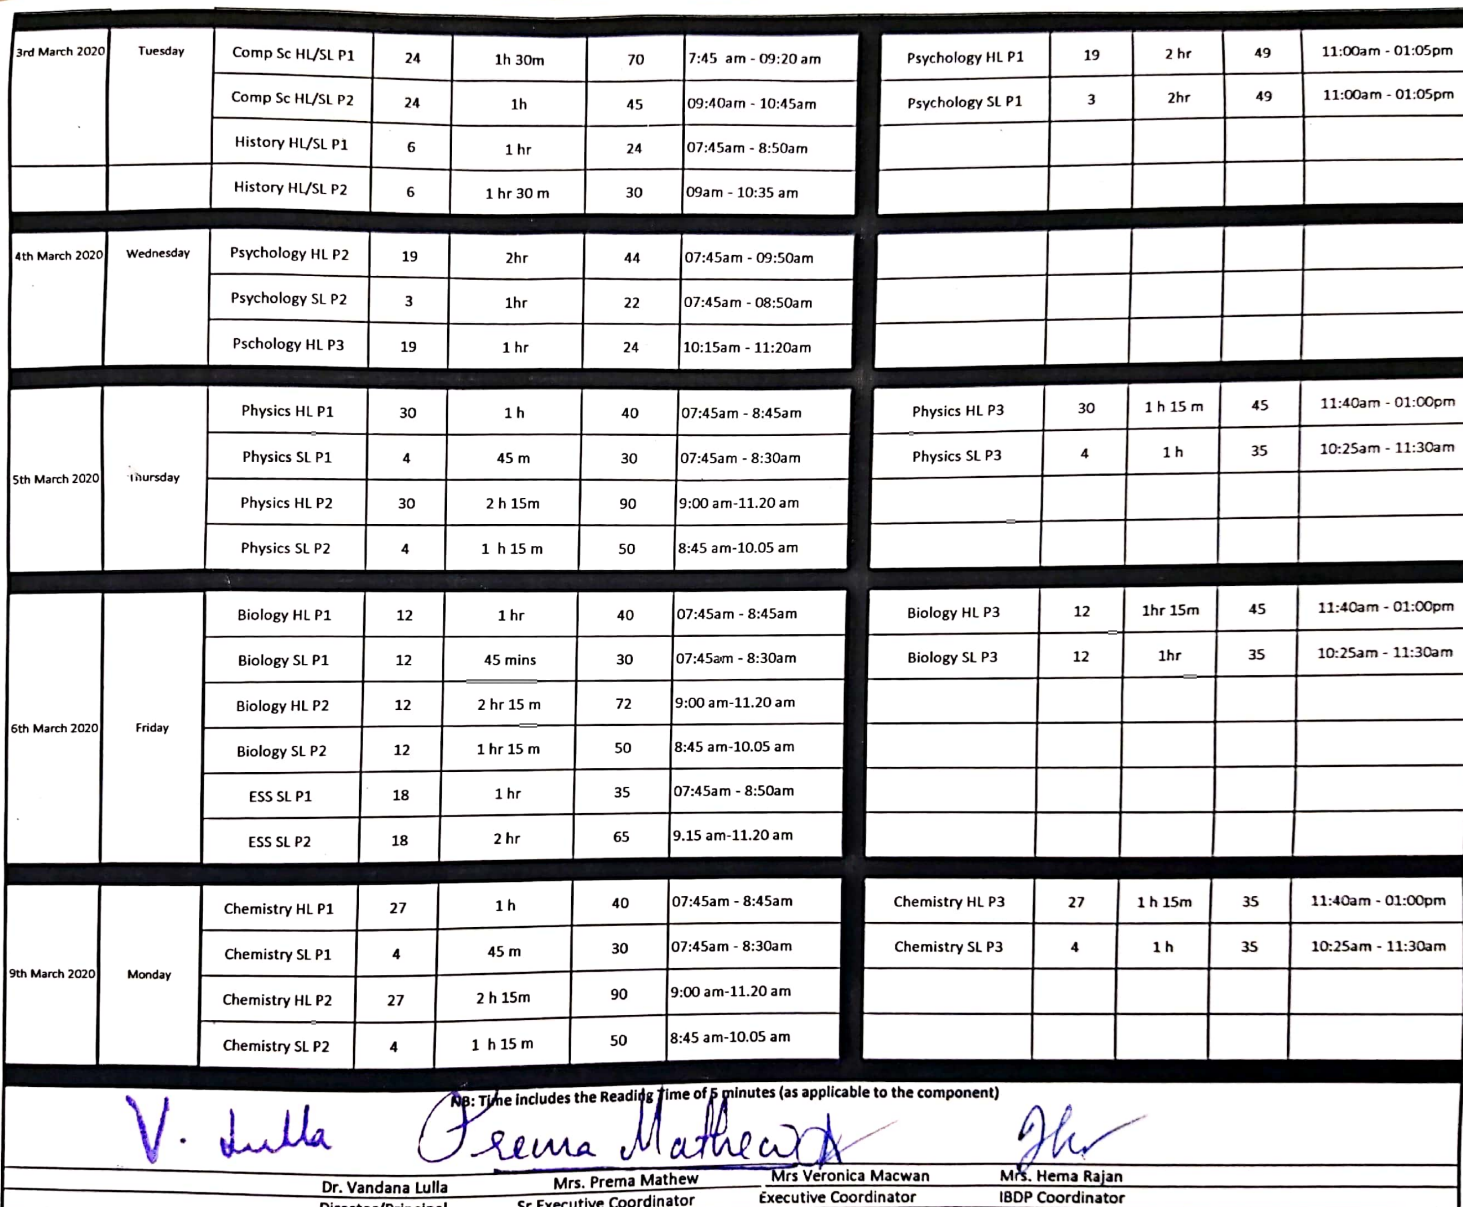 3rd March 2020 Tuesday Comp Sc HL/SL P1 24 1h 30m 70 7:45 am - 09:20 am Psychology HL P1 19 2 hr 49 11:00am - 01:05pm
Comp Sc HL/SL P2 24 1h 45 09:40am - 10:45am Psychology SL P1 3 2hr 49 11:00am - 01:05pm
History HL/SL P1 6 1 hr 24 07:45am - 8:50am
History HL/SL P2 6 1 hr 30 m 30 09am - 10:35 am
4th March 2020 Wednesday Psychology HL P2 19 2hr 44 07:45am - 09:50am
Psychology SL P2 3 1hr 22 07:45am - 08:50am
Pschology HL P3 19 1 hr 24 10:15am - 11:20am
Physics HL P1 30 1 h 40 07:45am - 8:45am Physics HL P3 30 1 h 15 m 45 11:40am - 01:00pm
Physics SL P1 4 45 m 30 07:45am - 8:30am Physics SL P3 4 1 h 35 10:25am - 11:30am
5th March 2020 Thursday Physics HL P2 30 2 h 15m 90 9:00 am-11.20 am
Physics SL P2 4 1 h 15 m 50 8:45 am-10.05 am
Biology HL P1 12 1 hr 40 07:45am - 8:45am Biology HL P3 12 1hr 15m 45 11:40am - 01:00pm
Biology SL P1 12 45 mins 30 07:45am - 8:30am Biology SL P3 12 1hr 35 10:25am - 11:30am
Biology HL P2 12 2 hr 15 m 72 9:00 am-11.20 am
6th March 2020 Friday Biology SL P2 12 1 hr 15 m 50 8:45 am-10.05 am
ESS SL P1 18 1 hr 35 07:45am - 8:50am
ESS SL P2 18 2 hr 65 9.15 am-11.20 am
Chemistry HL P1 27 1 h 40 07:45am - 8:45am Chemistry HL P3 27 1 h 15m 35 11:40am - 01:00pm
Chemistry SL P1 4 45 m 30 07:45am - 8:30am Chemistry SL P3 4 1 h 35 10:25am - 11:30am
9th March 2020 Monday Chemistry HL P2 27 2 h 15m 90 9:00 am-11.20 am
Chemistry SL P2 4 1 h 15 m 50 8:45 am-10.05 am
NB: Time includes the Reading Time of 5 minutes (as applicable to the component)
V. Lulla Prema Mathew
Dr. Vandana Lulla Mrs. Prema Mathew Mrs Veronica Macwan Mrs. Hema Rajan
Director/Principal Sr Executive Coordinator Executive Coordinator IBDP Coordinator